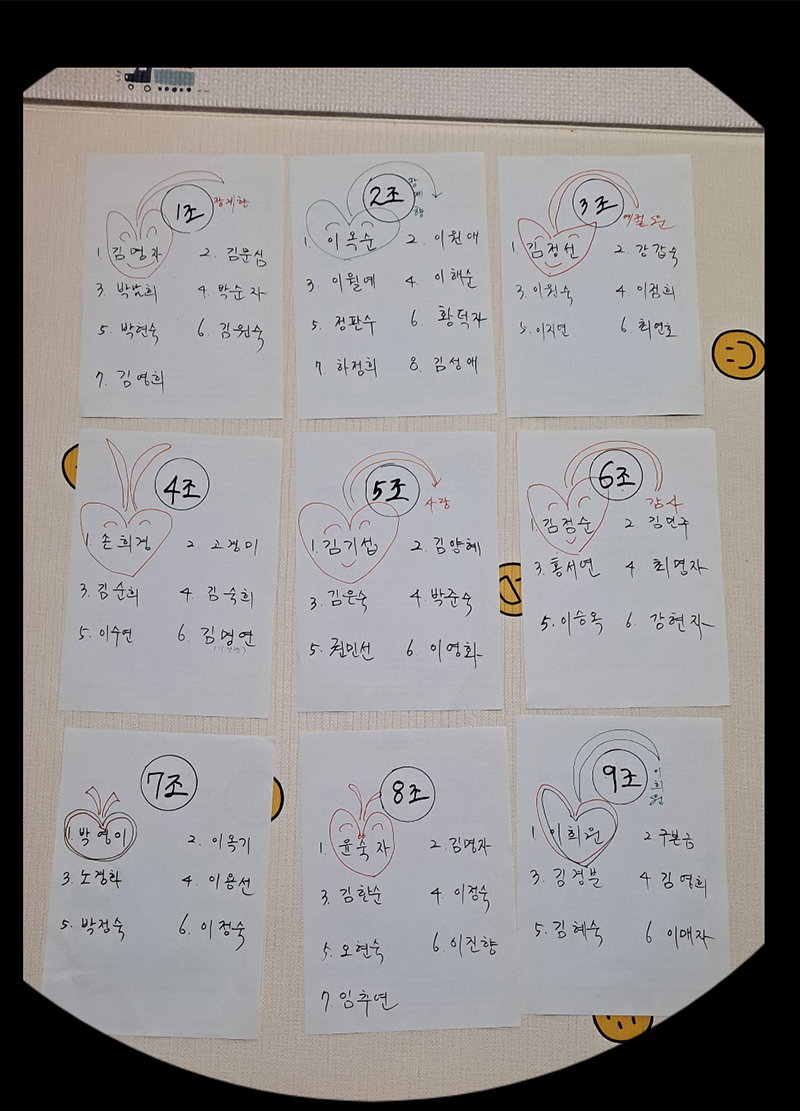 1조
1. 김명자 2. 김문심
3. 박남희 4. 박순자
5. 박현숙 6. 김원숙
7. 김영희
2조
1. 이옥순 2. 이원애
3. 이월예 4. 이해순
5. 정판수 6. 황덕자
7. 하정희 8. 김성애
3조
1. 김정선 2. 강갑숙
3. 이원숙 4. 이점희
5. 이지연 6. 최연호
4조
1. 손희경 2. 고경미
3. 김순희 4. 김숙희
5. 이수연 6. 김명연
5조
사랑
1. 김기섭 2. 김양혜
3. 김은숙 4. 박준숙
5. 권민선 6. 이영화
6조
감사
1. 김점순 2. 김연주
3. 홍서연 4. 최명자
5. 이승옥 6. 강현자
7조
1. 박영이 2. 이옥기
3. 노경화 4. 이용선
5. 박정숙 6. 이정숙
8조
1. 윤숙자 2. 김명자
3. 김한순 4. 이정숙
5. 오현숙 6. 이진향
7. 임추연
9조
이희원
1. 이희원 2 구본금
3. 김경분 4 김영희
5. 김혜숙 6 이매자